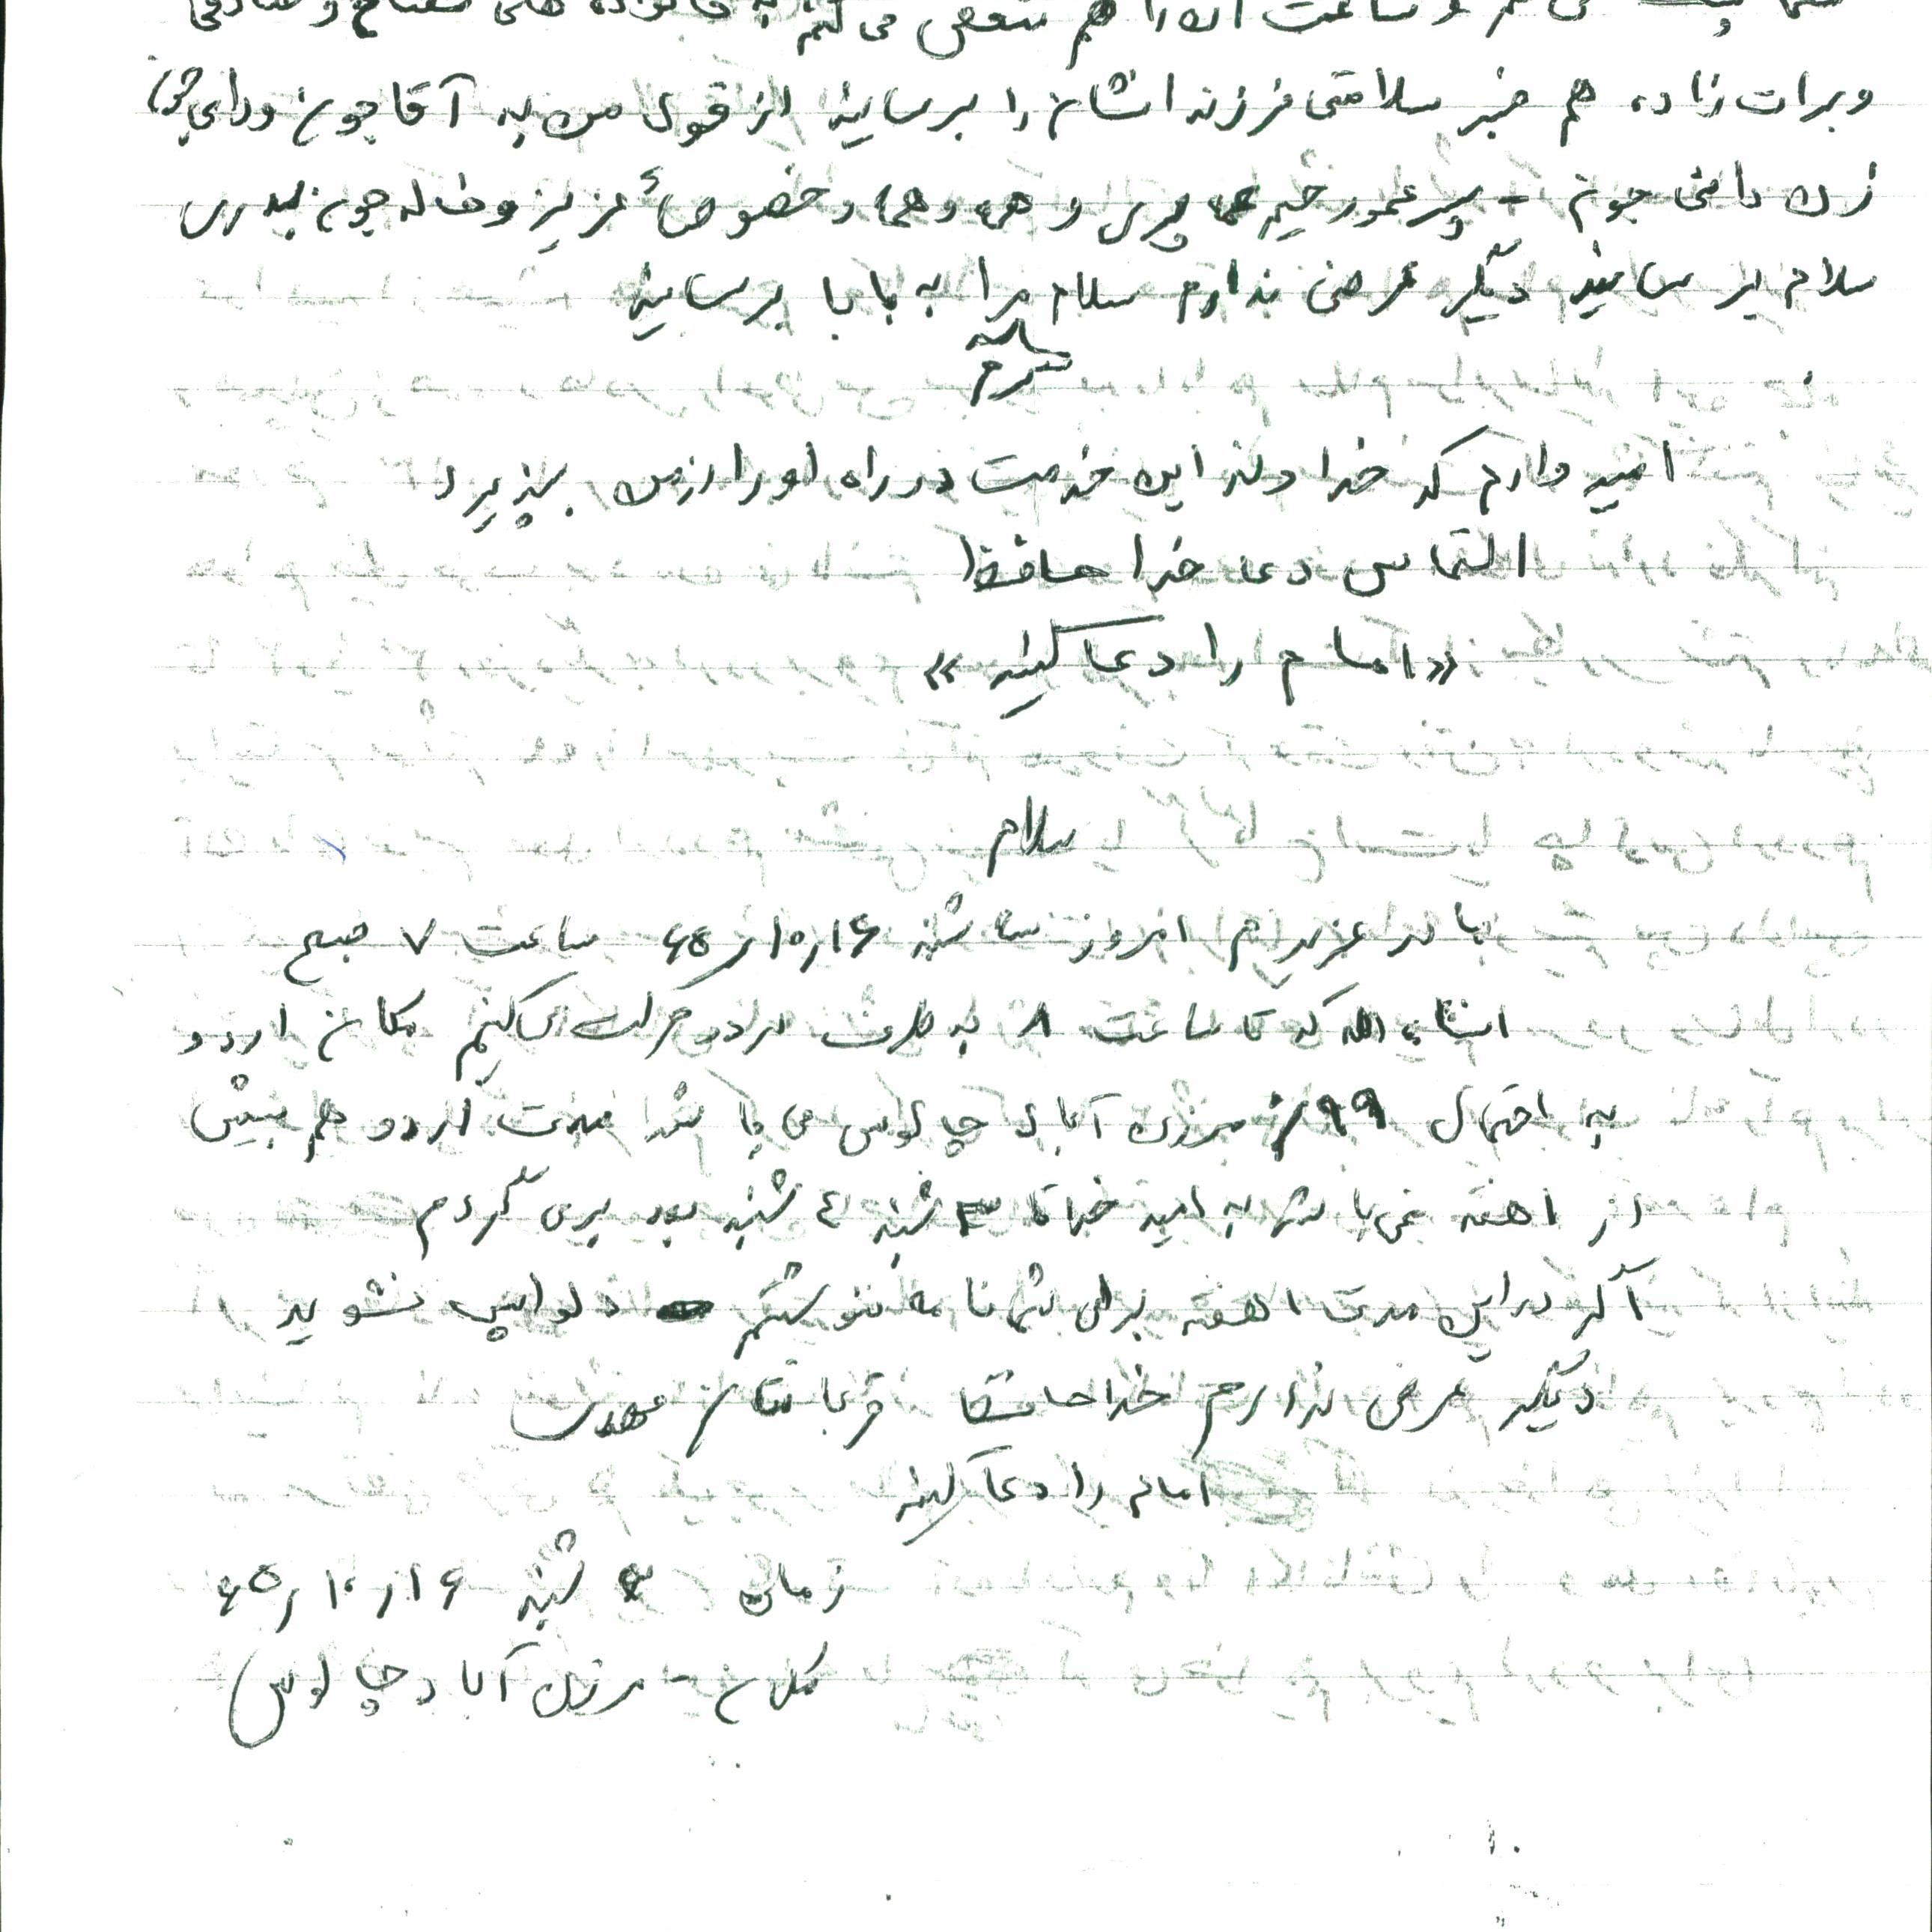 و ساعت آن را هم مشخص می کنم به خانواده های مفتاح و صادقی
و برات زاده هم خبر سلامتی فرزندانشان را برسانید از قول من به آقاجون و دایی جون
زن دائی جون - پسر عمو رحیم عمه پری و همه و هما و خصوصاً عزیز و خاله جون
سلام برسانید دیگر عرضی ندارم سلام مرا به بابا برسانید
امیدوارم که خداوند این خدمت در راه او را از من بپذیرد
التماس دعا خداحافظ
«امام را دعا کنید»
سلام
مادر عزیزم امروز سه شنبه ۶۵/۱۰/۱۶ ساعت ۷ صبح
انشاء الله که تا ساعت ۸ به طرف اردو حرکت می کنیم مکان اردو
به احتمال ۹۹٪ مرزن آباد چالوس می باشد مدت اردو هم بیش
از ۱ هفته نمی باشد به امید خدا تا ۳ شنبه ۴ شنبه بعد برمی گردم
اگر در این مدت ۱ هفته برای شما نامه ننوشتم دلواپس نشوید
دیگر عرضی ندارم خداحافظ قربانتان مهدی
امام را دعا کنید
زمان ۳ شنبه ۶۵/۱۰/۱۶
مکان - مرزن آباد چالوس